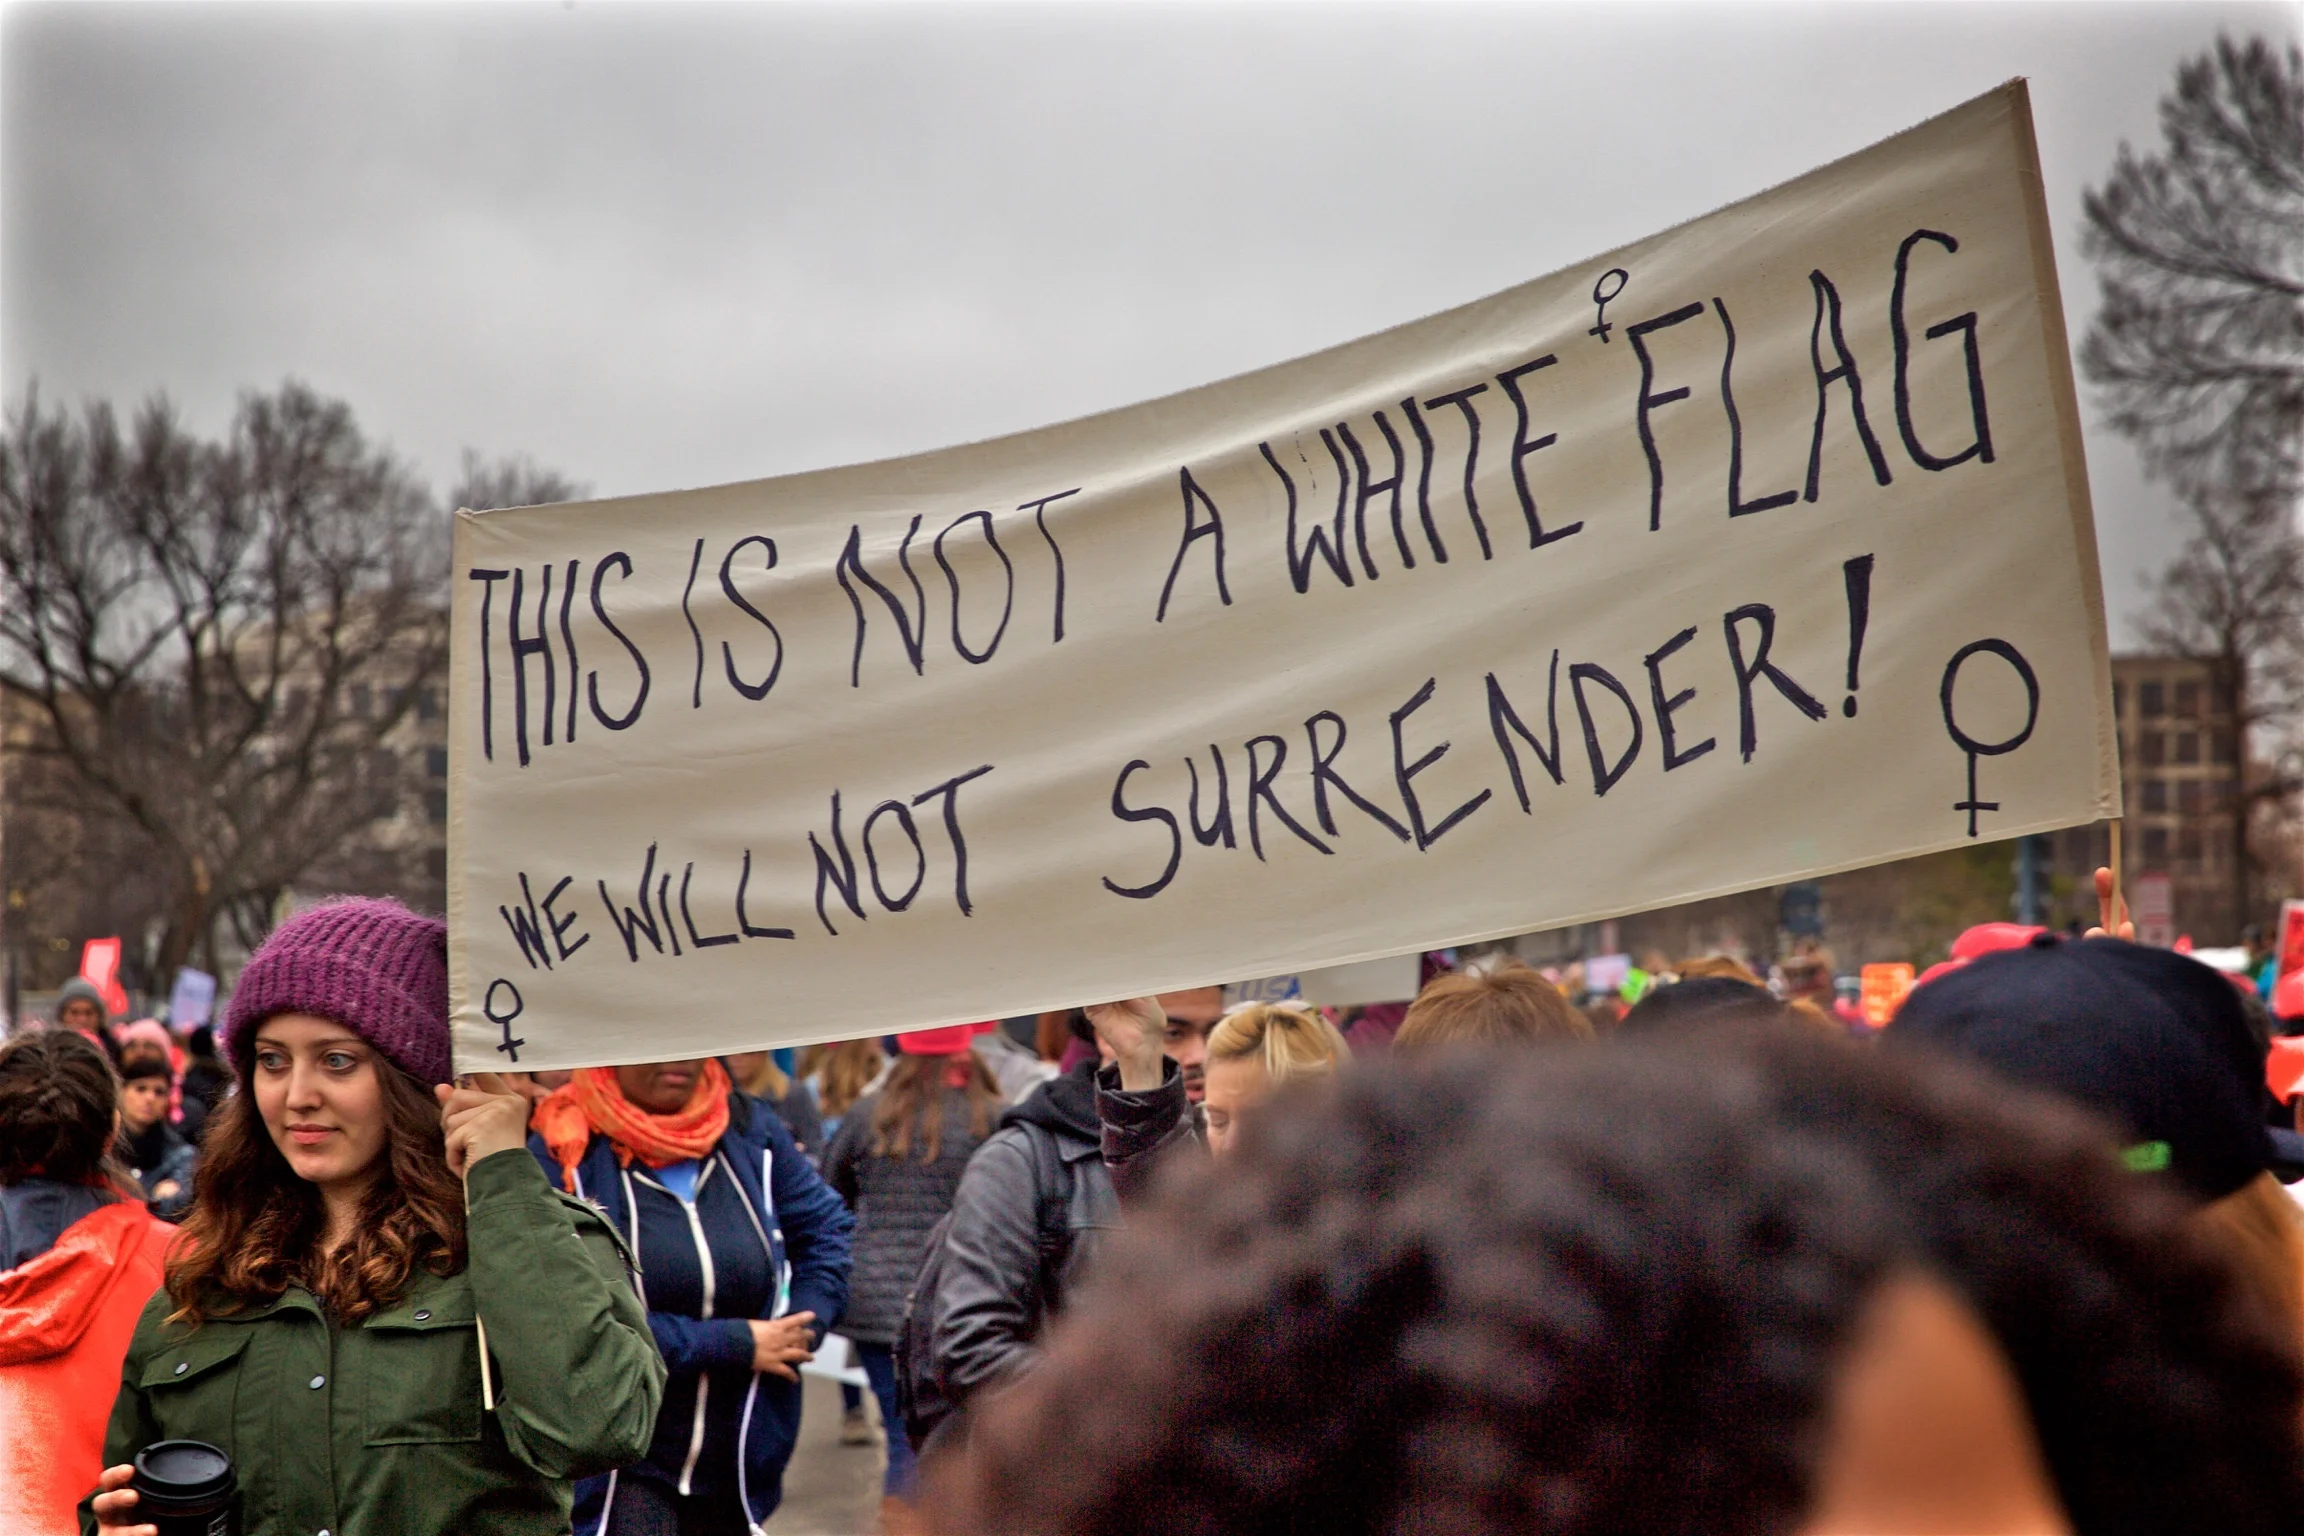 THIS IS NOT A WHITE FLAG
WE WILL NOT SURRENDER!
USA